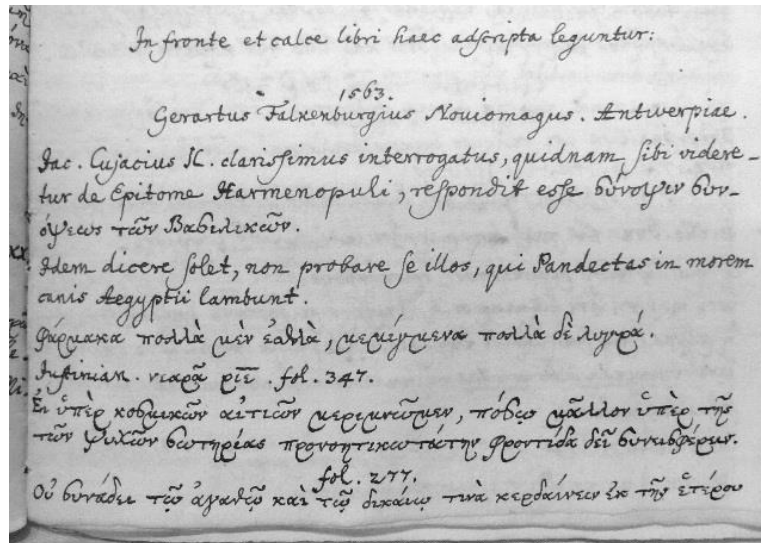 In fronte et calce libri haec adscripta leguntur:
1563.
Gerartus Falkenburgius Noviomagus. Antwerpiae.
Iac. Cujacius IC. clarissimus interrogatus, quidnam sibi videre-
tur de Epitome Harmenopuli, respondit esse σύνοψιν συν-
όψεως τῶν Βασιλικῶν.
Idem dicere solet, non probare se illos, qui Pandectas in morem
canis Aegyptii lambunt.
Φάρμακα πολλὰ μὲν ἐσθλὰ, μεμιγμένα πολλὰ δὲ λυγρά.
Iustinian. νεαρᾷ ριε. fol. 347.
Εἰ ὑπὲρ κοσμικῶν αἰτιῶν μεριμνῶμεν, πόσῳ μᾶλλον ὑπὲρ τῆς
τῶν ψυχῶν σωτηρίας προνοητικωτάτην φροντίδα δεῖ συνεισφέρειν.
fol. 277.
Οὐ συνάδει τῷ ἀγαθῷ καὶ τῷ δικαίῳ τινὰ κερδαίνειν ἐκ τῆς ἑτέρου